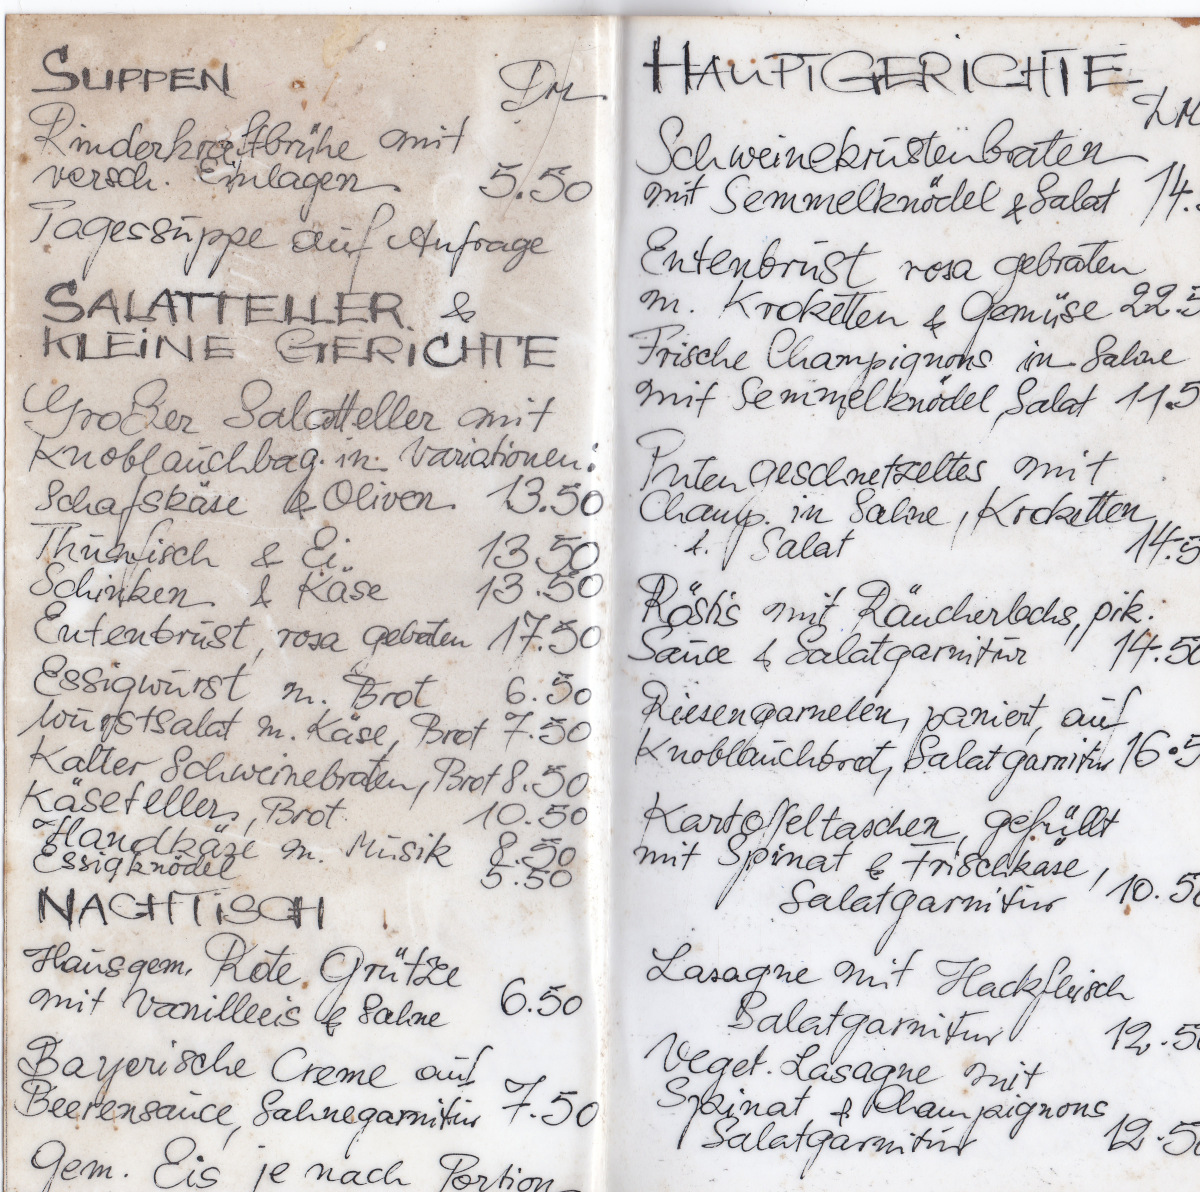 SUPPEN DM
Rinderkraftbrühe mit
versch. Einlagen 5.50
Tagessuppe auf Anfrage
SALATTELLER &
KLEINE GERICHTE
Großer Salatteller mit
Knoblauchbag. in Variationen:
Schafskäse & Oliven 13.50
Thunfisch & Ei 13.50
Schinken & Käse 13.50
Entenbrust, rosa gebraten 17.50
Essigwurst m. Brot 6.50
Wurstsalat m. Käse, Brot 7.50
Kalter Schweinebraten, Brot 8.50
Käseteller, Brot 10.50
Handkäse m. Musik 8.50
Essigknödel 5.50
NACHTISCH
Hausgem. Rote Grütze
mit Vanilleeis & Sahne 6.50
Bayerische Creme auf
Beerensauce, Sahnegarnitur 7.50
Gem. Eis je nach Portion
HAUPTGERICHTE
DM
Schweinekrustenbraten
mit Semmelknödel & Salat 14.
Entenbrust rosa gebraten
m. Kroketten & Gemüse 22.5
Frische Champignons in Sahne
mit Semmelknödel, Salat 11.5
Putengeschnetzeltes mit
Champ. in Sahne, Kroketten
& Salat 14.5
Röstis mit Räucherlachs, pik.
Sauce & Salatgarnitur 14.50
Riesengarnelen, paniert, auf
Knoblauchbrot, Salatgarnitur 16.5
Kartoffeltaschen, gefüllt
mit Spinat & Frischkäse,
Salatgarnitur 10.50
Lasagne mit Hackfleisch
Salatgarnitur 12.50
Veget. Lasagne mit
Spinat & Champignons
Salatgarnitur 12.50